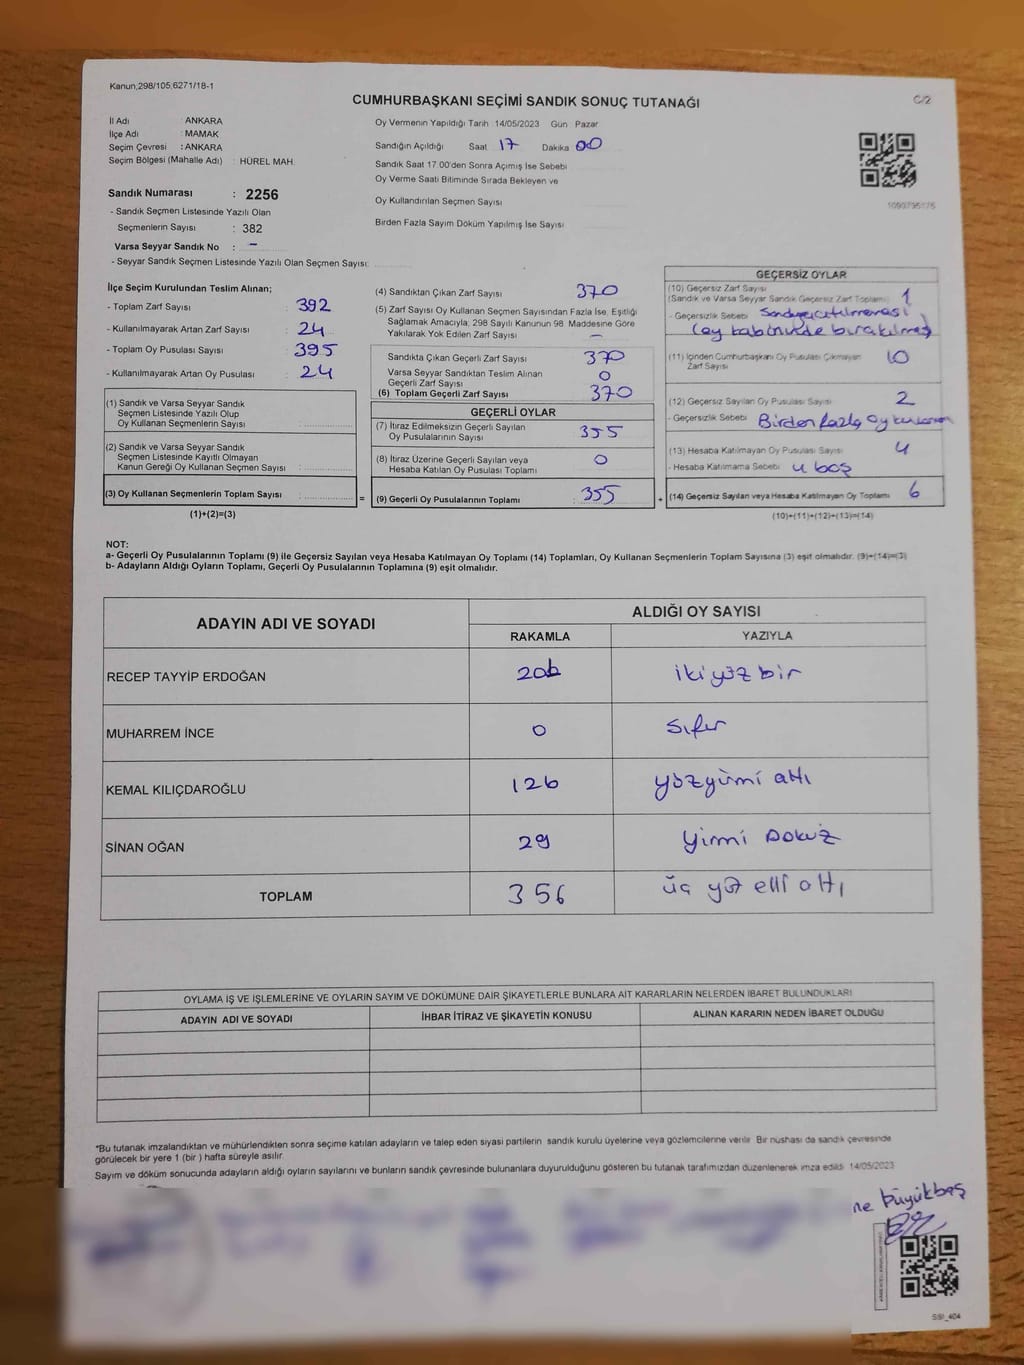 Kanun;298/105;6271/18-1
CUMHURBAŞKANI SEÇİMİ SANDIK SONUÇ TUTANAĞI
C/2
İl Adı : ANKARA
İlçe Adı : MAMAK
Seçim Çevresi : ANKARA
Seçim Bölgesi (Mahalle Adı) : HÜREL MAH.
Sandık Numarası : 2256
- Sandık Seçmen Listesinde Yazılı Olan
Seçmenlerin Sayısı : 382
Varsa Seyyar Sandık No : -
- Seyyar Sandık Seçmen Listesinde Yazılı Olan Seçmen Sayısı:
Oy Vermenin Yapıldığı Tarih 14/05/2023 Gün Pazar
Sandığın Açıldığı Saat 17 Dakika 00
Sandık Saat 17.00'den Sonra Açılmış İse Sebebi
Oy Verme Saati Bitiminde Sırada Bekleyen ve
Oy Kullandırılan Seçmen Sayısı
Birden Fazla Sayım Döküm Yapılmış İse Sayısı
İlçe Seçim Kurulundan Teslim Alınan;
- Toplam Zarf Sayısı : 392
- Kullanılmayarak Artan Zarf Sayısı : 24
- Toplam Oy Pusulası Sayısı : 395
- Kullanılmayarak Artan Oy Pusulası : 24
(1) Sandık ve Varsa Seyyar Sandık
Seçmen Listesinde Yazılı Olup
Oy Kullanan Seçmenlerin Sayısı :
(2) Sandık ve Varsa Seyyar Sandık
Seçmen Listesinde Kayıtlı Olmayan
Kanun Gereği Oy Kullanan Seçmen Sayısı :
(3) Oy Kullanan Seçmenlerin Toplam Sayısı : =
(1)+(2)=(3)
(4) Sandıktan Çıkan Zarf Sayısı 370
(5) Zarf Sayısı Oy Kullanan Seçmen Sayısından Fazla İse, Eşitliği
Sağlamak Amacıyla; 298 Sayılı Kanunun 98. Maddesine Göre
Yakılarak Yok Edilen Zarf Sayısı -
Sandıkta Çıkan Geçerli Zarf Sayısı 370
Varsa Seyyar Sandıktan Teslim Alınan
Geçerli Zarf Sayısı 0
(6) Toplam Geçerli Zarf Sayısı 370
GEÇERLİ OYLAR
(7) İtiraz Edilmeksizin Geçerli Sayılan
Oy Pusulalarının Sayısı : 355
(8) İtiraz Üzerine Geçerli Sayılan veya
Hesaba Katılan Oy Pusulası Toplamı : 0
(9) Geçerli Oy Pusulalarının Toplamı : 355 +
GEÇERSİZ OYLAR
(10) Geçersiz Zarf Sayısı
(Sandık ve Varsa Seyyar Sandık Geçersiz Zarf Toplamı) 1
- Geçersizlik Sebebi
(oy kabininde bırakılmış
(11) İçinden Cumhurbaşkanı Oy Pusulası Çıkmayan
Zarf Sayısı 10
(12) Geçersiz Sayılan Oy Pusulası Sayısı 2
- Geçersizlik Sebebi Birden fazla oy
(13) Hesaba Katılmayan Oy Pusulası Sayısı 4
- Hesaba Katılmama Sebebi 4 boş
(14) Geçersiz Sayılan veya Hesaba Katılmayan Oy Toplamı 6
(10)+(11)+(12)+(13)=(14)
NOT:
a- Geçerli Oy Pusulalarının Toplamı (9) ile Geçersiz Sayılan veya Hesaba Katılmayan Oy Toplamı (14) Toplamları, Oy Kullanan Seçmenlerin Toplam Sayısına (3) eşit olmalıdır. (9)+(14)=(3)
b- Adayların Aldığı Oyların Toplamı, Geçerli Oy Pusulalarının Toplamına (9) eşit olmalıdır.
ADAYIN ADI VE SOYADI ALDIĞI OY SAYISI
RAKAMLA YAZIYLA
RECEP TAYYİP ERDOĞAN ikiyüz bir
MUHARREM İNCE 0 sıfır
KEMAL KILIÇDAROĞLU 126 yüzyirmi altı
SİNAN OĞAN 29 Yirmi Dokuz
TOPLAM 356 üç yüz elli altı
OYLAMA İŞ VE İŞLEMLERİNE VE OYLARIN SAYIM VE DÖKÜMÜNE DAİR ŞİKAYETLERLE BUNLARA AİT KARARLARIN NELERDEN İBARET BULUNDUKLARI
ADAYIN ADI VE SOYADI İHBAR İTİRAZ VE ŞİKAYETİN KONUSU ALINAN KARARIN NEDEN İBARET OLDUĞU
*Bu tutanak imzalandıktan ve mühürlendikten sonra seçime katılan adayların ve talep eden siyasi partilerin sandık kurulu üyelerine veya gözlemcilerine verilir. Bir nüshası da sandık çevresinde
görülecek bir yere 1 (bir ) hafta süreyle asılır.
Sayım ve döküm sonucunda adayların aldığı oyların sayılarını ve bunların sandık çevresinde bulunanlara duyurulduğunu gösteren bu tutanak tarafımızdan düzenlenerek imza edildi. 14/05/2023
ne büyükbaş